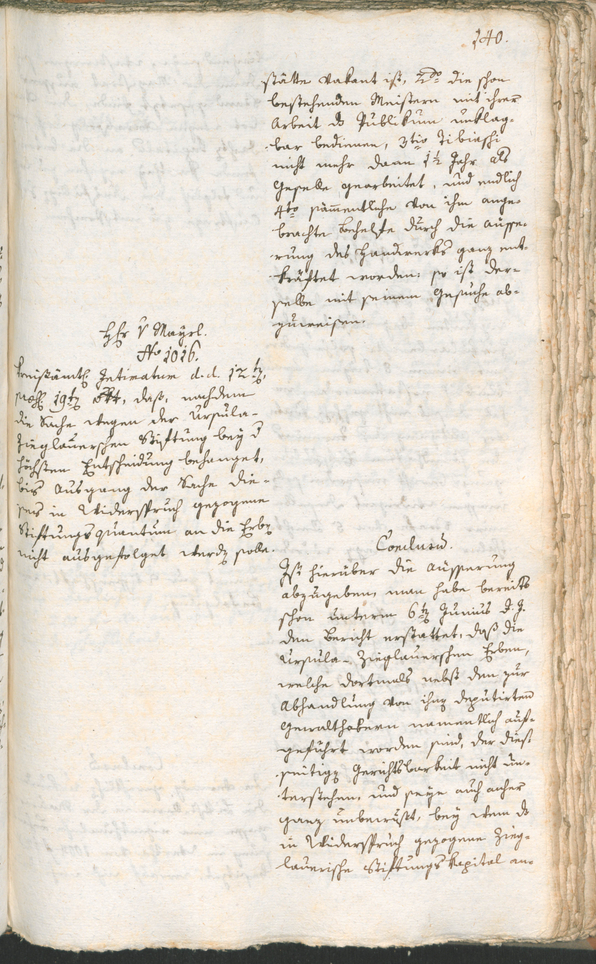 140.
stätte vakant ist, 2do die schon
bestehenden Meistern mit ihrer
Arbeit das Publikum unklag-
bar bedienen, 3tio Tibiaschi
nicht mehr dann 1 1/2 Jahr als
Geselle gearbeitet, und endlich
4to sämmentliche von ihm ange-
brachte Behelfe durch die Äusse-
rung des Handwerks ganz ent-
kräftet worden; so ist der-
selbe mit seinem Gesuche ab-
zuweisen.
Hr v Mayrl.
No 1016.
Kreisämtl. Intimatum d. d. 12ten
praes. 19ten, daß, nachdem
die Sache wegen der Ursula-
Zieglauerschen Stiftung bey der
höchsten Entscheidung behanget,
bis Ausgang der Sache die-
ses in Widerspruch gezogene
Stiftungsquantum an die Erben
nicht ausgefolget werden solle.
Conclusum.
Ist hierüber die Äusserung
abzugeben, man habe bereits
schon unterm 6ten Junius d. J.
den Bericht erstattet, daß die
Ursula-Zieglauerschen Erben,
welche dortmals nebst den zur
Abhandlung von ihnen deputirten
Gewalthabern namentlich auf-
geführt worden sind, der dieß-
seitigen Gerichtsbarkeit nicht un-
terstehen, und seye auch anher
ganz unbewußt, bey wem das
in Widerspruch gezogene Zieg-
lauerische Stiftungs Kapital an-